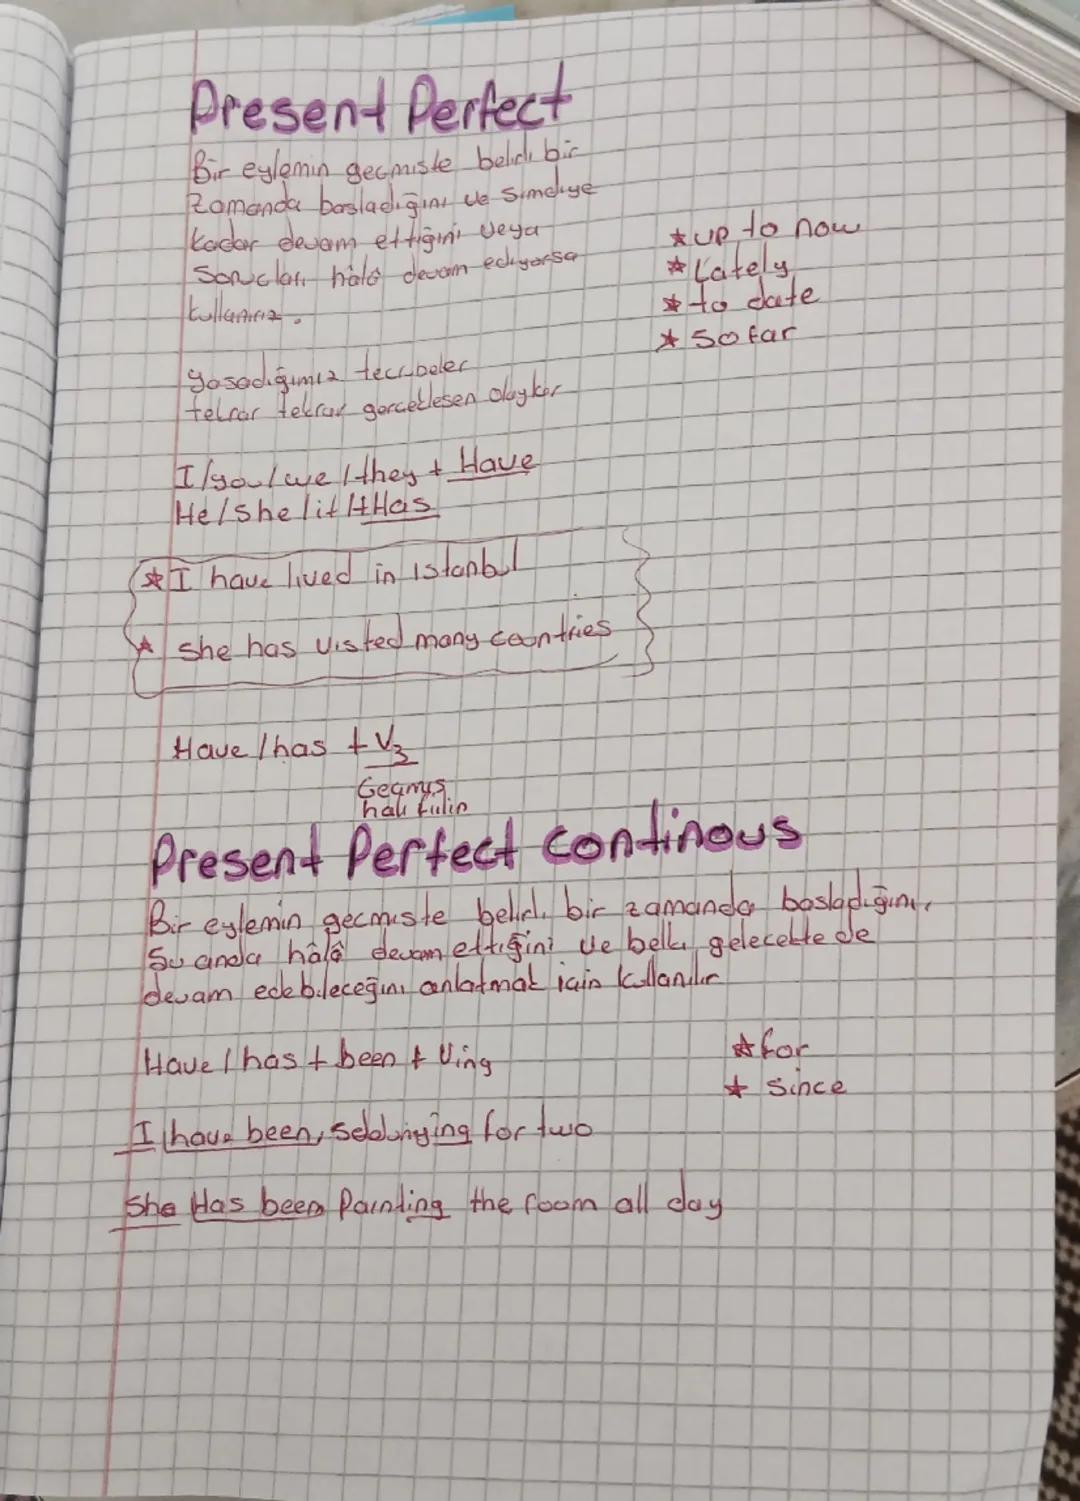 Present Perfect
Bir eylemin gecmiste belirli bir
zamanda basladiğini ve simdiye
kadar devam ettiğini veya
Sonuclari hâlâ devam ediyorsa
kullaniriz.
* up to now
* Lately
* to date
* So far
yasadiğimiz tecrubeler
tekrar tekrar gerceklesen olaylar
I/you/we/they + Have
He/She/it/+Has
* I have lived in istanbul
* she has visted many countries
Have/has + V3
Gecmis
hali fiilin
Present Perfect continous
Bir eylemin gecmiste belirli bir zamanda basladiğini,
Su anda hâlâ devam ettiğini ve belki gelecekte de
devam edebileceğini anlatmak icin kullanilir
Have/has + been + Ving
* for
* since
I have been, for two
She Has been Painting the room all day